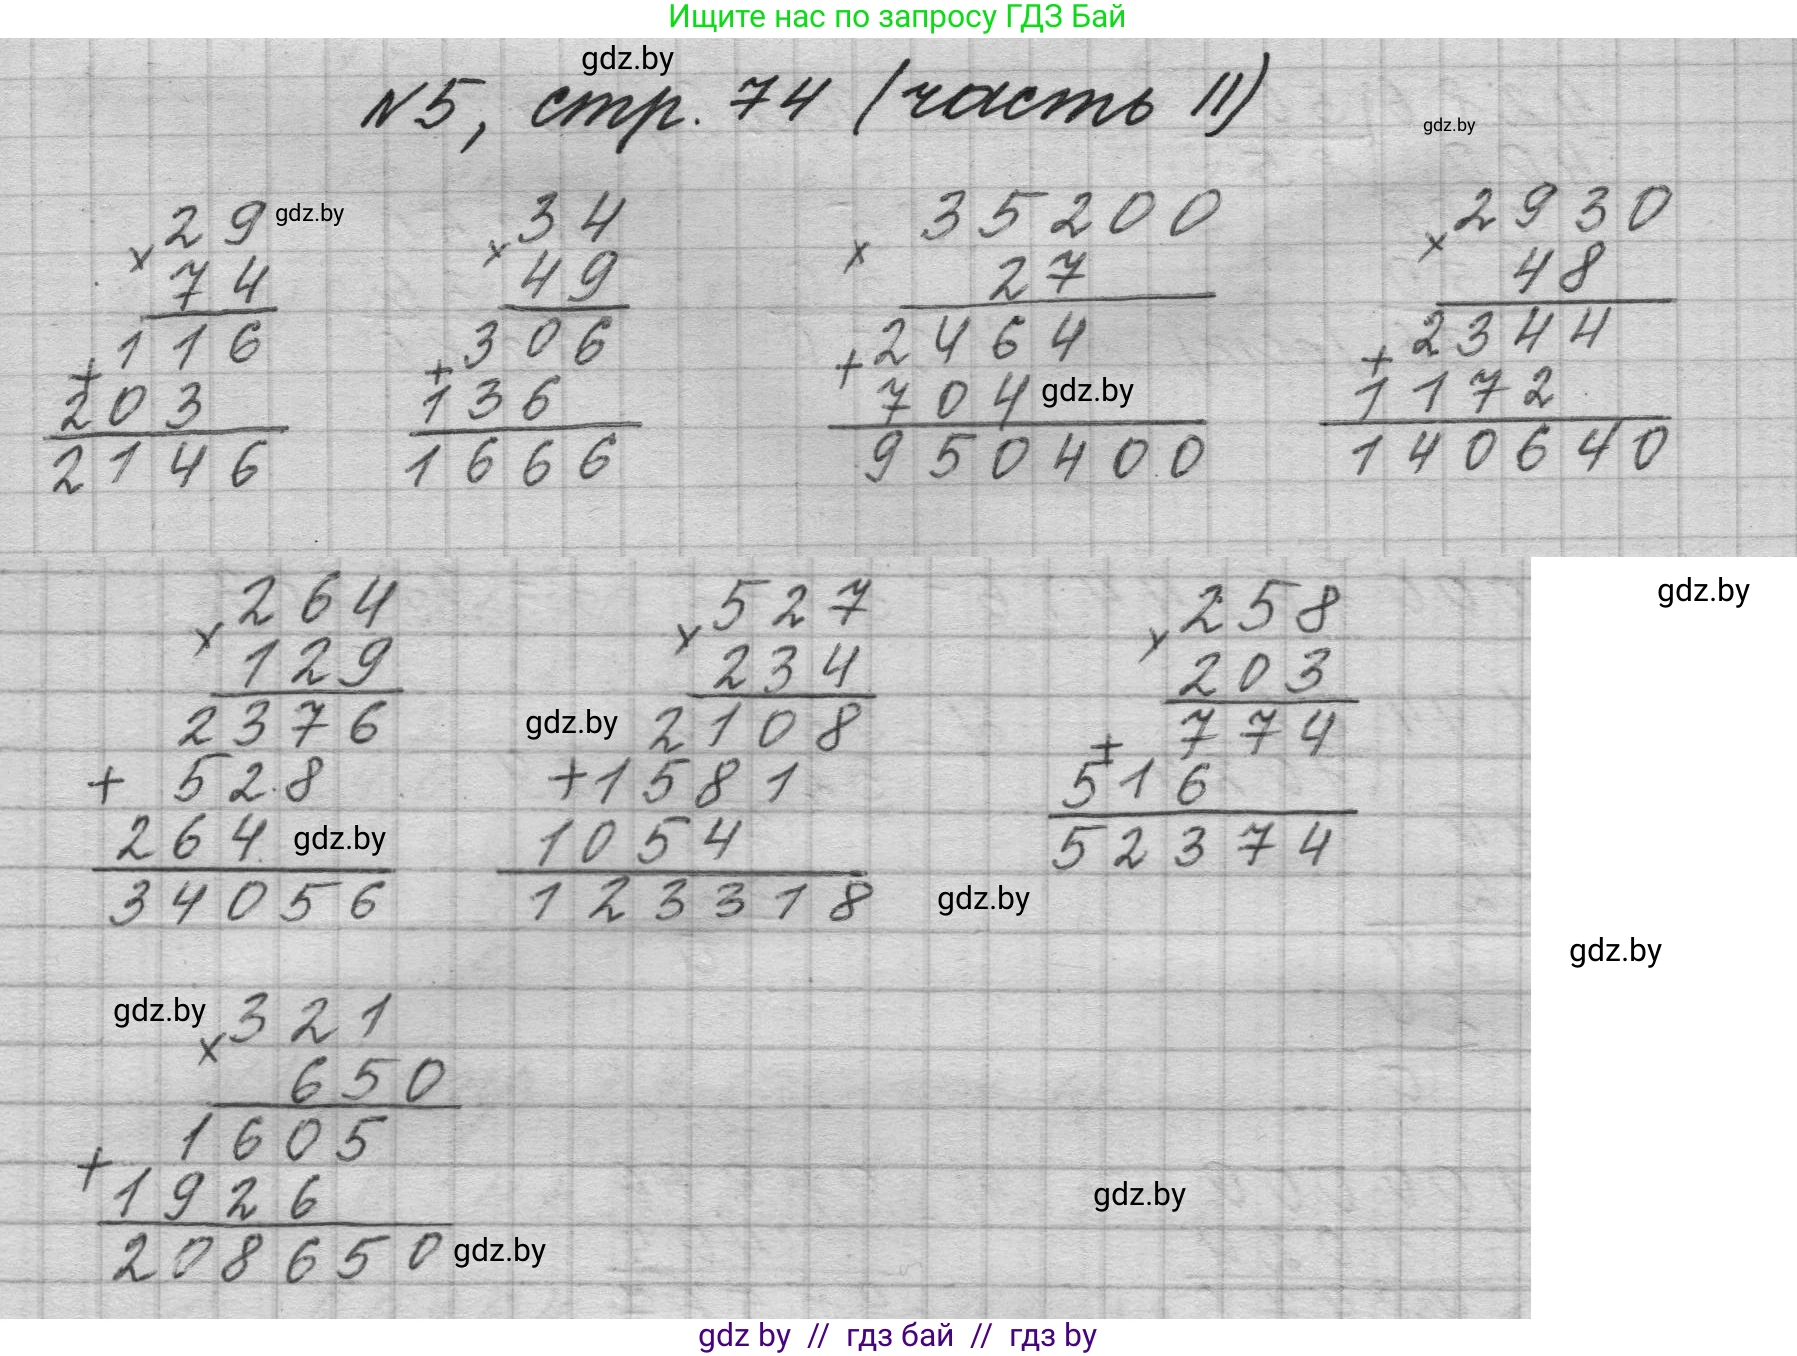 Ищите нас по запросу ГДЗ Бай
gdz.by
№5, стр. 74 (часть II)
gdz.by
29 gdz.by
× 74
116
+ 203
2146
34
× 49
306
+ 136
1666
35200
× 27
2464
+ 704 gdz.by
950400
2930
× 48
2344
+ 1172
140640
264
× 129
2376
+ 528
264 gdz.by
34056
527
× 234
gdz.by 2108
+ 1581
1054
123318
gdz.by
258
× 203
774
+ 516
52374
gdz.by
gdz.by
gdz.by 321
× 650
1605
+ 1926
208650 gdz.by
gdz.by
gdz by // гдз бай // гдз by